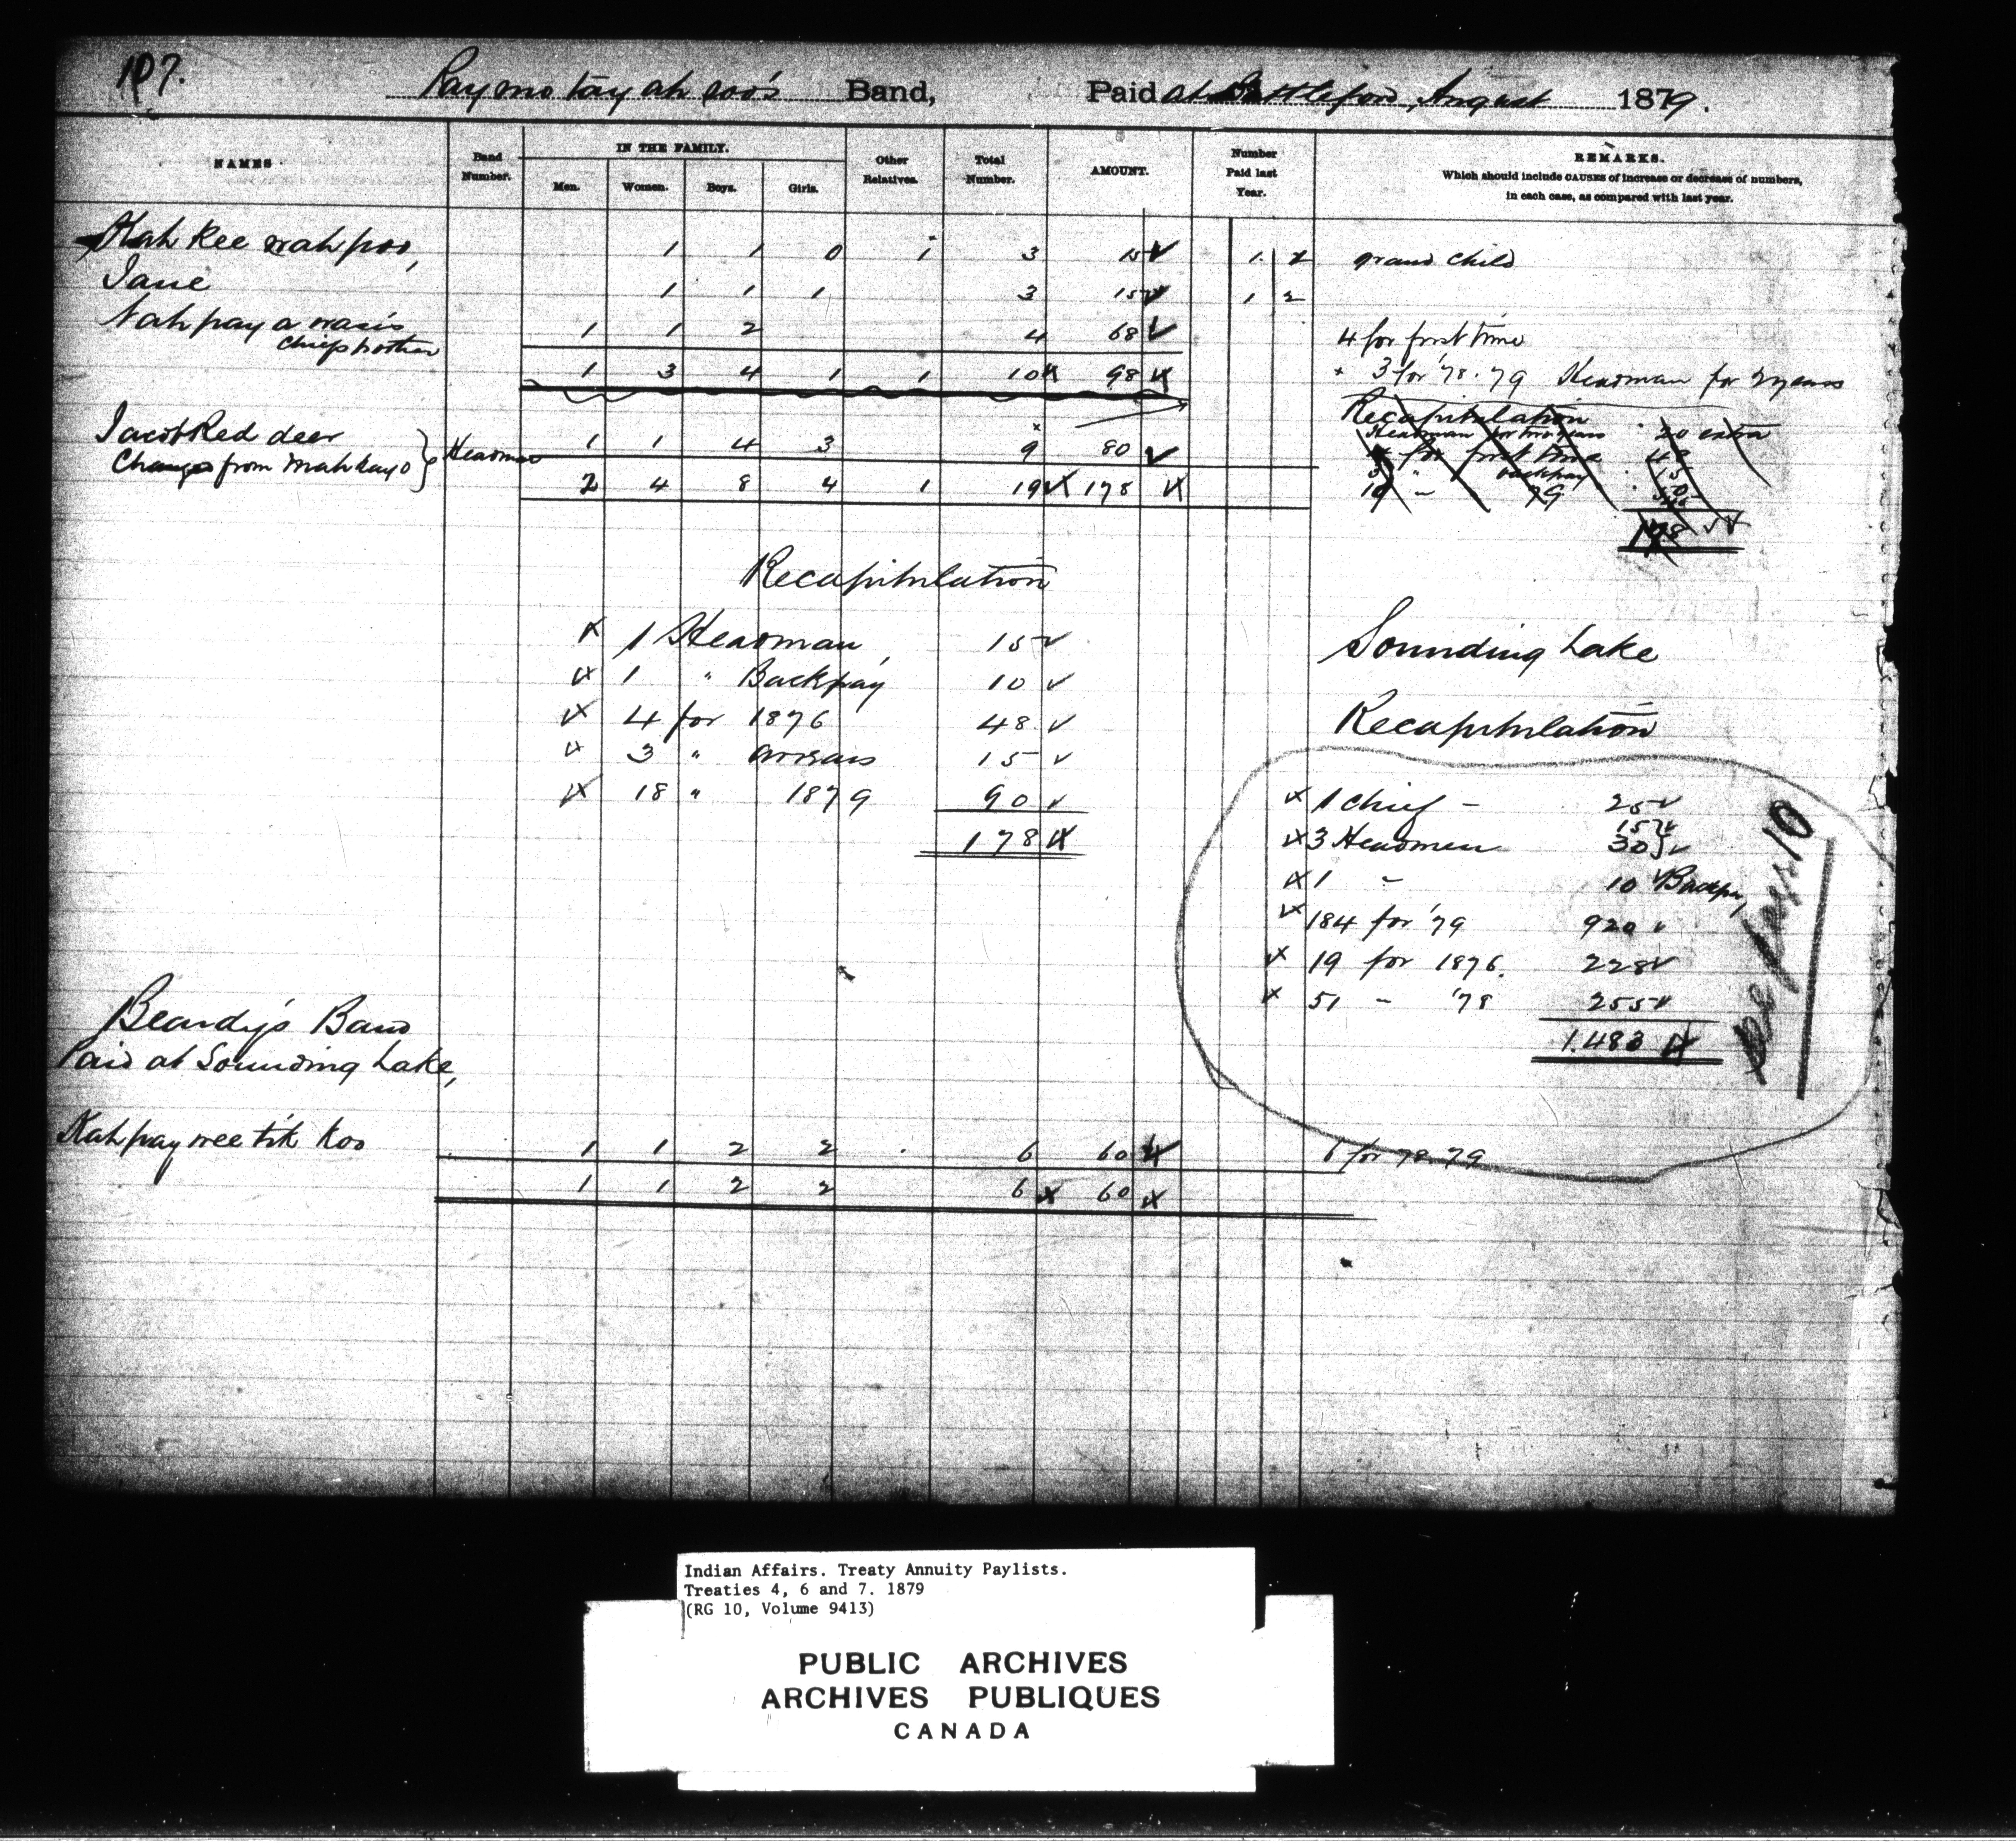 107.
Pay mo tay ah soo's Band, Paid at Battleford, August 1879.
NAMES Band Number. IN THE FAMILY. Men. Women. Boys. Girls. Other Relatives. Total Number. AMOUNT. Number Paid last Year. REMARKS.
Which should include CAUSES of increase or decrease of numbers,
in each case, as compared with last year.
Kah kee wah poo, 1 1 0 1 3 15 1 2 grand child
Jane 1 1 1 3 15 1 2
Nah pay a wasis 1 1 2 4 68 4 for first time
Chiefs brother
1 3 4 1 1 10 98 + 3 for '78. 79 Headman for 2 years
Recapitulation
Jacob Red deer Headman 1 1 4 3 9 80
Headman for two years 20 extra
Changed from Mahkayo
4 for first time 48
2 4 8 4 1 19 178
3 " backpay 15
10 - 79
178
Recapitulation
1 Headman 15
1 " Backpay 10
4 for 1876 48
3 " arrears 15
18 " 1879 90
178
Sounding Lake
Recapitulation
1 Chief - 25
3 Headmen 15 30
1 - 10 Backpay
184 for '79 920
19 for 1876. 228
51 - '78 255
1.483
Beardy's Band
Paid at Sounding Lake,
Kah pay wee tik koo 1 1 2 2 6 60 6 for 78 79
1 1 2 2 6 60
Indian Affairs. Treaty Annuity Paylists.
Treaties 4, 6 and 7. 1879
(RG 10, Volume 9413)
PUBLIC ARCHIVES
ARCHIVES PUBLIQUES
CANADA